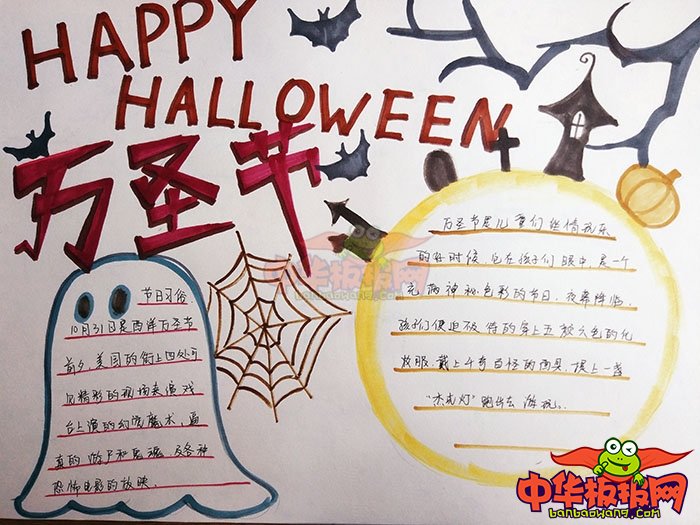 HAPPY
HALLOWEEN
万圣节
节日习俗
10月31日是西洋万圣节
前夕,美国的街上四处可
见精彩的现场表演戏
台上演的幻觉魔术,逼
真的游尸和鬼魂,及各种
恐怖电影的放映.
万圣节是儿童们纵情玩乐
的好时候,它在孩子们眼中,是一个
充满神秘色彩的节日,夜幕降临,
孩子们便迫不及待的穿上五颜六色的化
妆服,戴上千奇百怪的面具,提上一盏
"杰克灯"跑出去游玩.
中华板报网
banbaowang.com
中华板报网
banbaowang.com